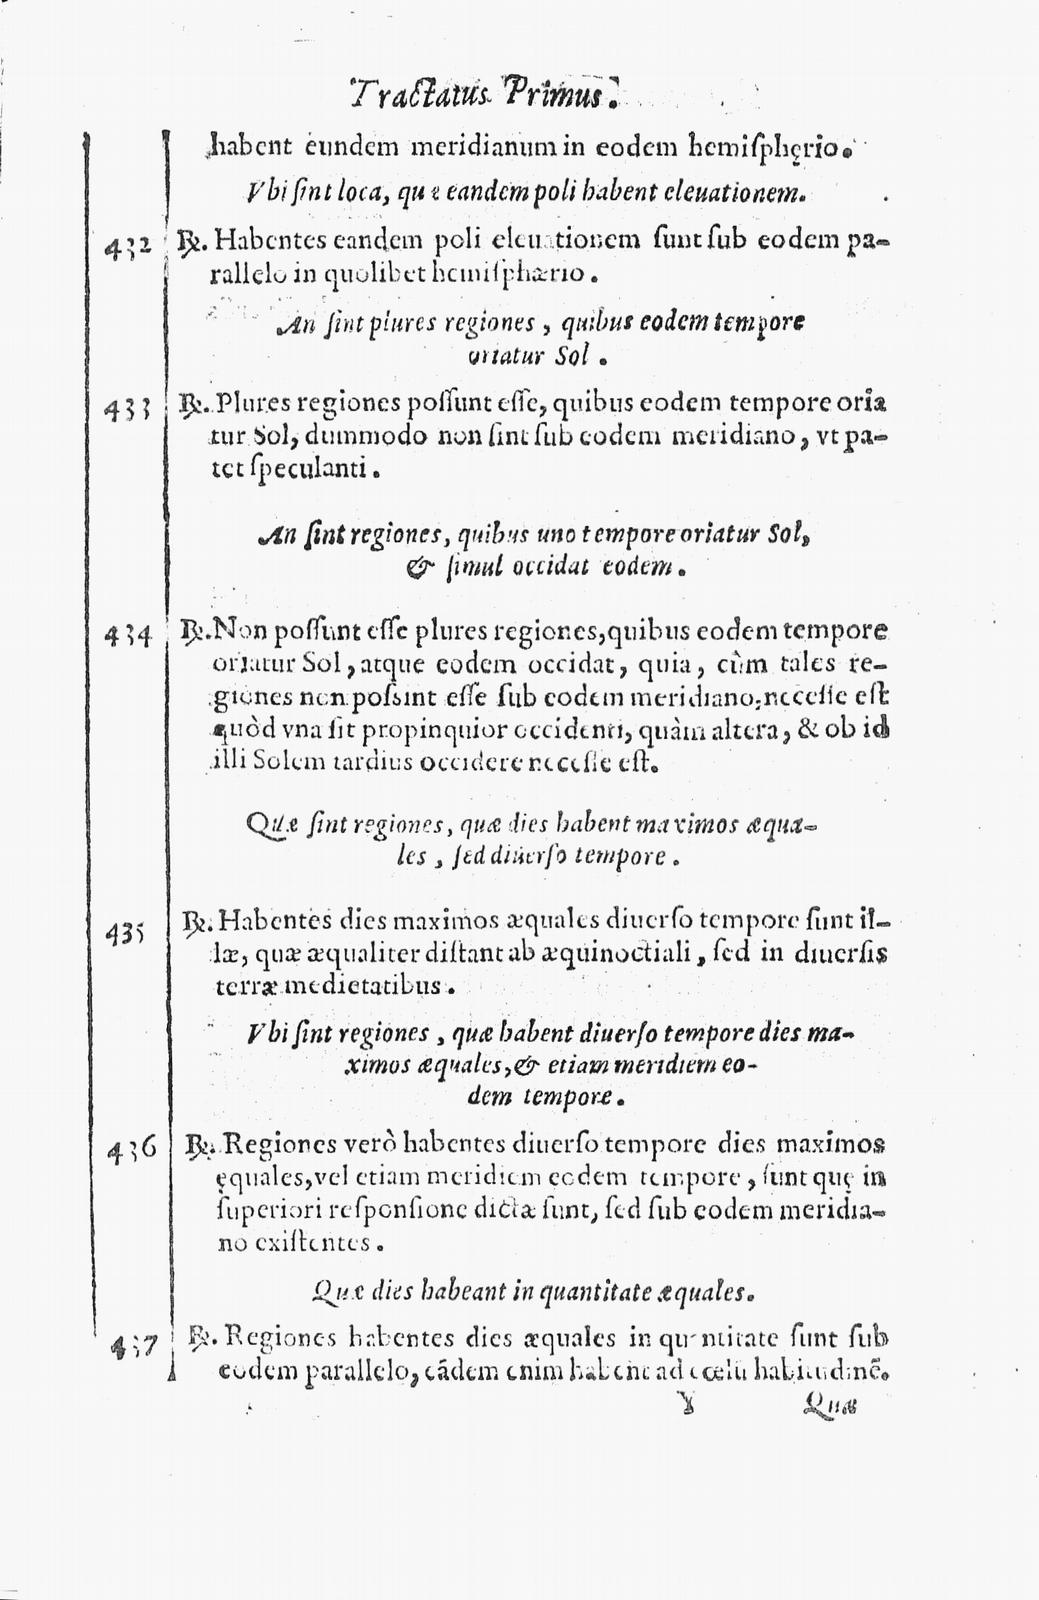 Tractatus Primus.
habent eundem meridianum in eodem hemiſphęrio.
Vbi ſint loca, quæ eandem poli habent eleuationem.
432 ℞. Habentes eandem poli eleuationem ſunt ſub eodem pa-
rallelo in quolibet hemiſphærio.
An ſint plures regiones, quibus eodem tempore
oriatur Sol.
433 ℞. Plures regiones poſſunt eſſe, quibus eodem tempore oria
tur Sol, dummodo non ſint ſub eodem meridiano, vt pa-
tet ſpeculanti.
An ſint regiones, quibus uno tempore oriatur Sol,
& ſimul occidat eodem.
434 ℞. Non poſſunt eſſe plures regiones, quibus eodem tempore
oriatur Sol, atque eodem occidat, quia, cùm tales re-
giones non poſsint eſſe ſub eodem meridiano, neceſſe eſt
quòd vna ſit propinquior occidenti, quàm altera, & ob id
illi Solem tardius occidere neceſſe eſt.
Quæ ſint regiones, quæ dies habent maximos æqua-
les, ſed diuerſo tempore.
435 ℞. Habentes dies maximos æquales diuerſo tempore ſunt il-
læ, quæ æqualiter diſtant ab æquinoctiali, ſed in diuerſis
terræ medietatibus.
Vbi ſint regiones, quæ habent diuerſo tempore dies ma-
ximos æquales, & etiam meridiem eo-
dem tempore.
436 ℞. Regiones verò habentes diuerſo tempore dies maximos
ęquales, vel etiam meridiem eodem tempore, ſunt quę in
ſuperiori reſponſione dictæ ſunt, ſed ſub eodem meridia-
no exiſtentes.
Quæ dies habeant in quantitate æquales.
437 ℞. Regiones habentes dies æquales in quantitate ſunt ſub
eodem parallelo, eãdem enim habent ad cœlũ habitudinẽ.
Y Quæ